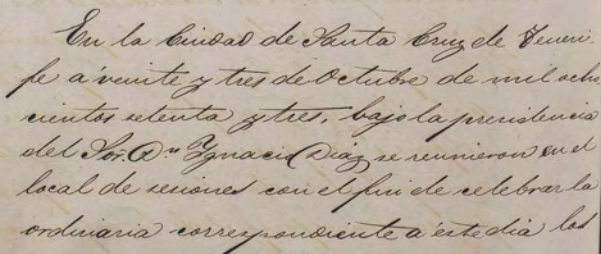 En la Ciudad de Santa Cruz de Teneri-
fe a veinte y tres de Octubre de mil ocho
cientos setenta y tres, bajo la presidencia
del Sor. Dn Ygnacio Diaz se reunieron en el
local de sesiones con el fin de celebrar la
ordinaria correspondiente a este dia los